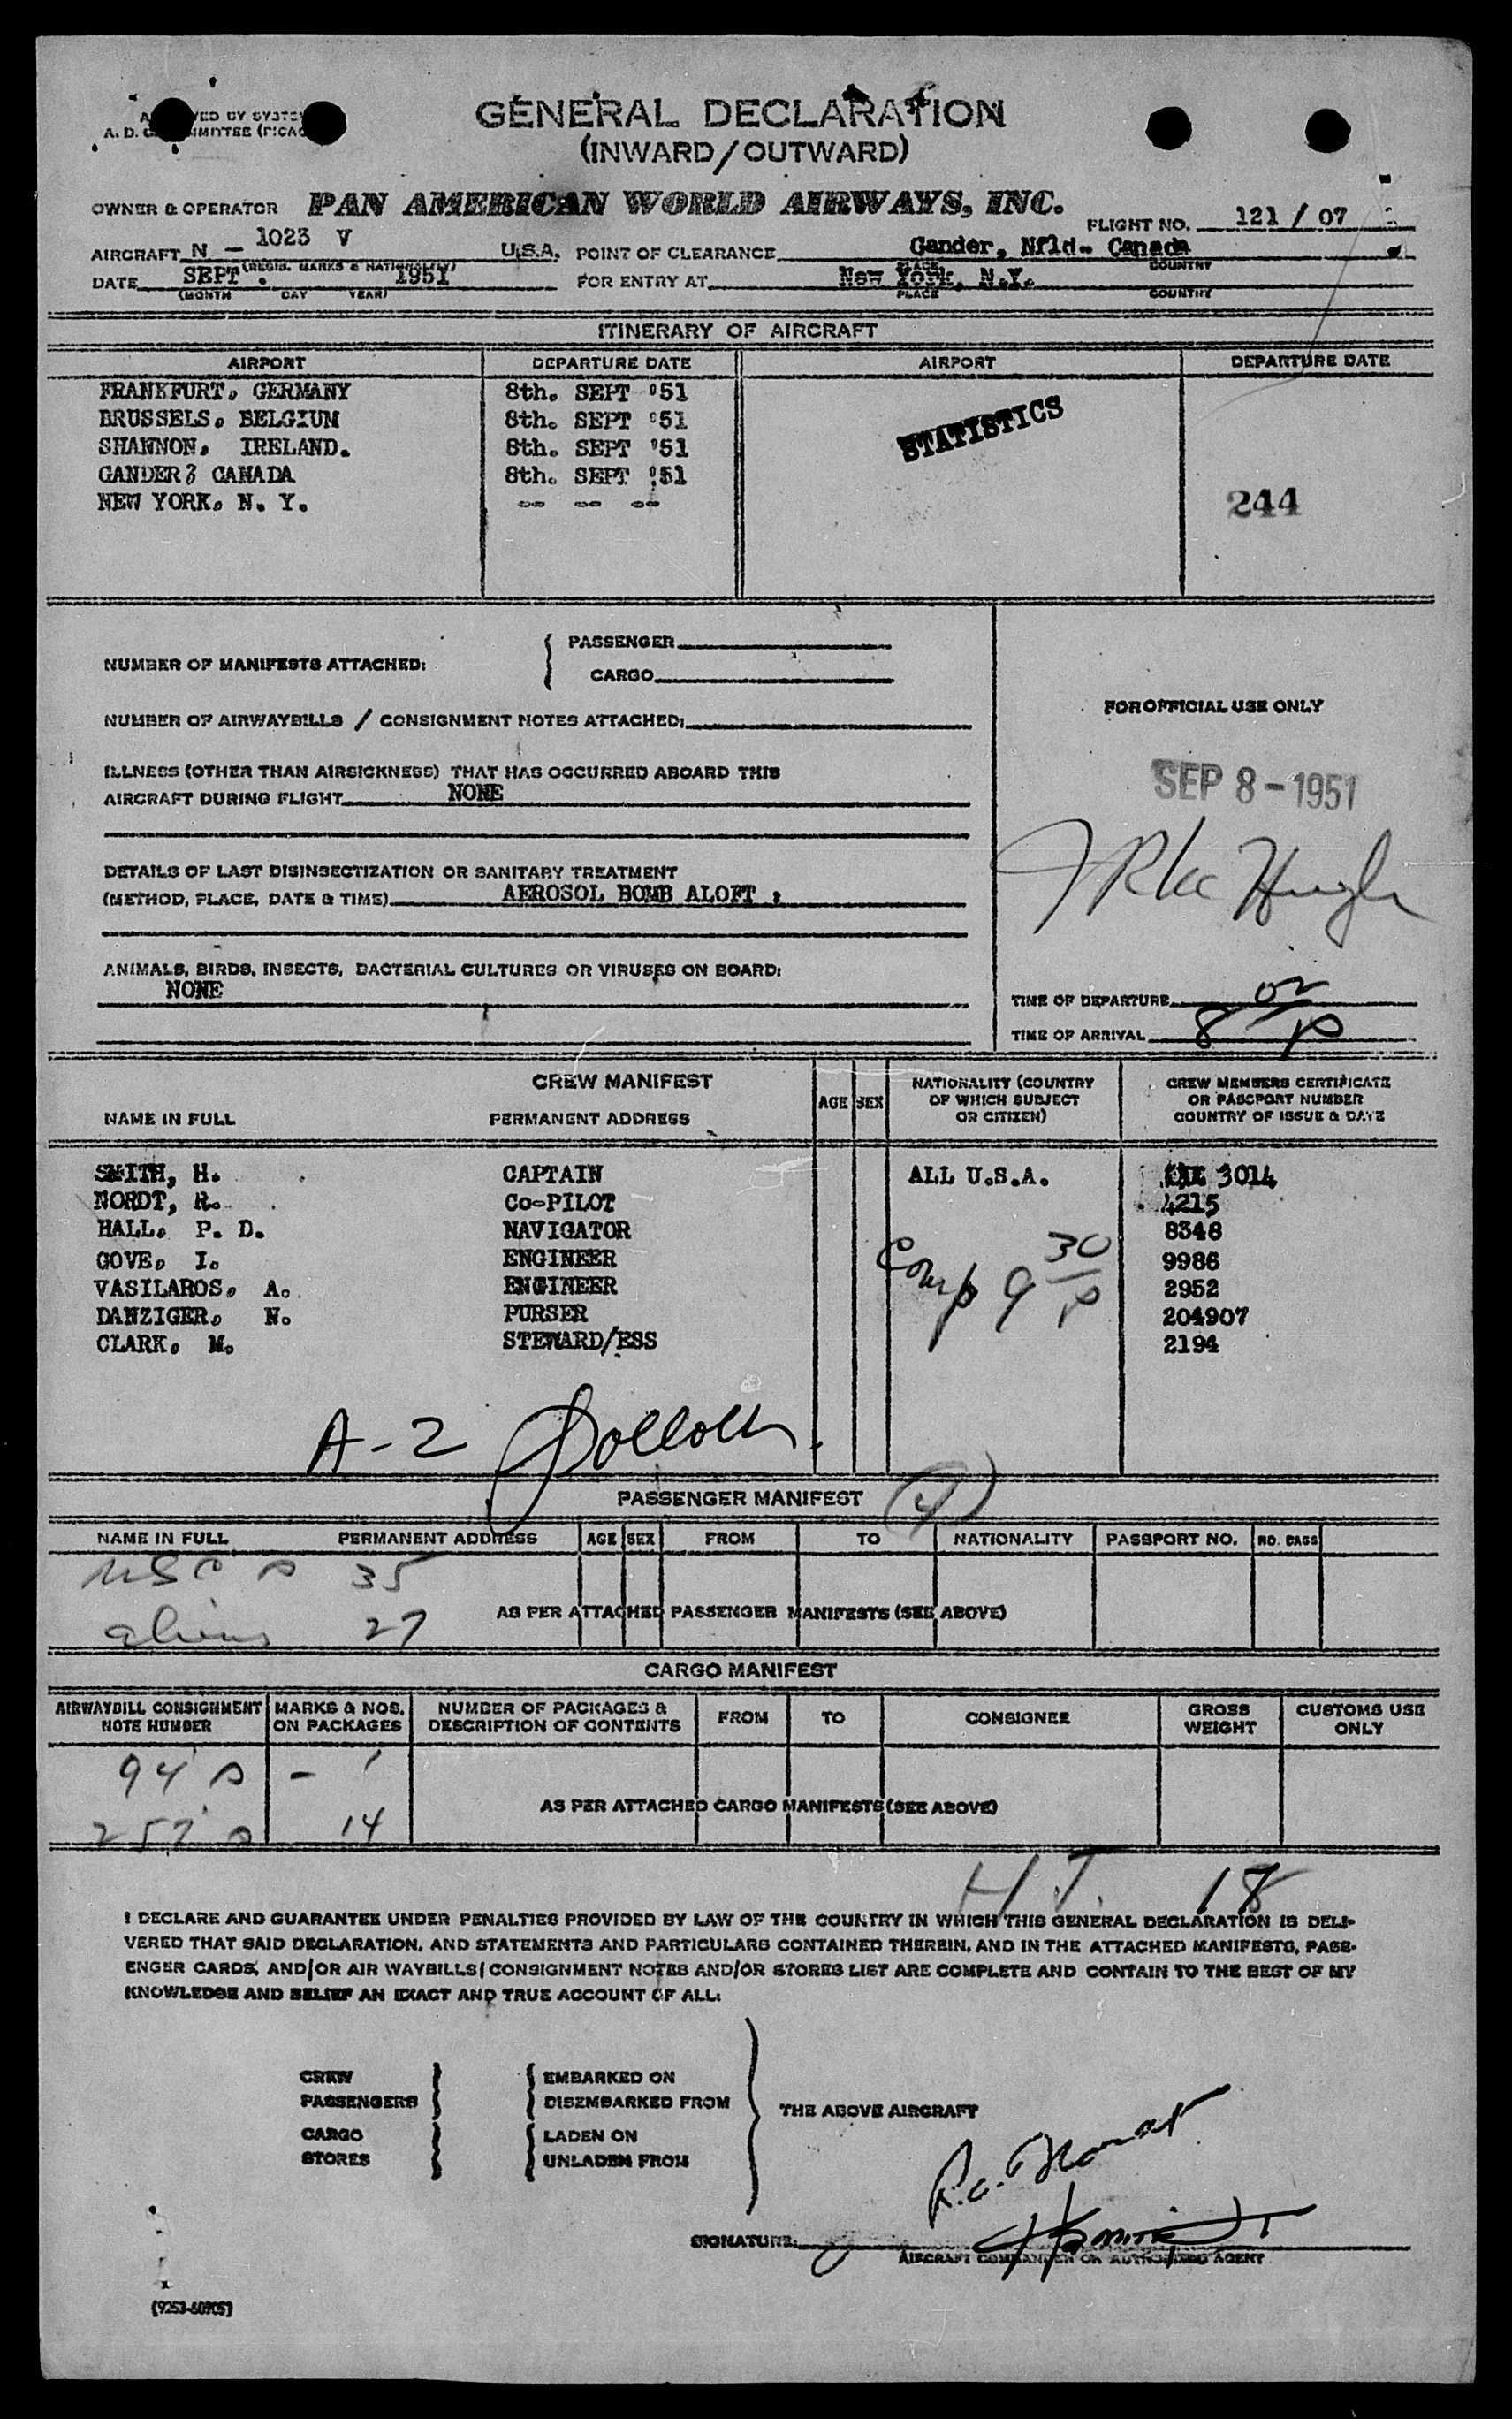 GENERAL DECLARATION
(INWARD/OUTWARD)
OWNER & OPERATOR PAN AMERICAN WORLD AIRWAYS, INC.
FLIGHT NO. 121 / 07
AIRCRAFT N - 1023 V U.S.A. POINT OF CLEARANCE Gander, Nfld- Canada
(REGIS. MARKS & NATIONALITY) PLACE COUNTRY
DATE SEPT. 1951 FOR ENTRY AT New York, N.Y.
(MONTH DAY YEAR) PLACE COUNTRY
ITINERARY OF AIRCRAFT
AIRPORT DEPARTURE DATE AIRPORT DEPARTURE DATE
FRANKFURT, GERMANY 8th. SEPT '51
BRUSSELS, BELGIUM 8th. SEPT '51
STATISTICS
SHANNON, IRELAND. 8th. SEPT '51
GANDER, CANADA 8th. SEPT '51
NEW YORK, N. Y. -- -- --
244
NUMBER OF MANIFESTS ATTACHED: PASSENGER
CARGO
NUMBER OF AIRWAYBILLS / CONSIGNMENT NOTES ATTACHED:
FOR OFFICIAL USE ONLY
ILLNESS (OTHER THAN AIRSICKNESS) THAT HAS OCCURRED ABOARD THIS
AIRCRAFT DURING FLIGHT NONE
SEP 8 - 1951
DETAILS OF LAST DISINSECTIZATION OR SANITARY TREATMENT
(METHOD, PLACE, DATE & TIME) AEROSOL BOMB ALOFT :
ANIMALS, BIRDS, INSECTS, BACTERIAL CULTURES OR VIRUSES ON BOARD:
NONE
TIME OF DEPARTURE
TIME OF ARRIVAL 8 02 P
CREW MANIFEST
NAME IN FULL PERMANENT ADDRESS AGE SEX NATIONALITY (COUNTRY OF WHICH SUBJECT OR CITIZEN) CREW MEMBERS CERTIFICATE OR PASSPORT NUMBER COUNTRY OF ISSUE & DATE
SMITH, H. CAPTAIN ALL U.S.A. 3014
NORDT, R. Co-PILOT 4215
HALL, P. D. NAVIGATOR 8348
GOVE, I. ENGINEER 9986
VASILAROS, A. ENGINEER 2952
DANZIGER, N. PURSER 204907
CLARK, M. STEWARD/ESS 2194
Comp 9 30 P
A-2
PASSENGER MANIFEST (4)
NAME IN FULL PERMANENT ADDRESS AGE SEX FROM TO NATIONALITY PASSPORT NO. NO. BAGS
USC s 35
aliens 27
AS PER ATTACHED PASSENGER MANIFESTS (SEE ABOVE)
CARGO MANIFEST
AIRWAYBILL CONSIGNMENT NOTE NUMBER MARKS & NOS. ON PACKAGES NUMBER OF PACKAGES & DESCRIPTION OF CONTENTS FROM TO CONSIGNEE GROSS WEIGHT CUSTOMS USE ONLY
94's - 1
AS PER ATTACHED CARGO MANIFESTS (SEE ABOVE)
257's 14
H.T. 18
I DECLARE AND GUARANTEE UNDER PENALTIES PROVIDED BY LAW OF THE COUNTRY IN WHICH THIS GENERAL DECLARATION IS DELI-
VERED THAT SAID DECLARATION, AND STATEMENTS AND PARTICULARS CONTAINED THEREIN, AND IN THE ATTACHED MANIFESTS, PASS-
ENGER CARDS, AND/OR AIR WAYBILLS/CONSIGNMENT NOTES AND/OR STORES LIST ARE COMPLETE AND CONTAIN TO THE BEST OF MY
KNOWLEDGE AND BELIEF AN EXACT AND TRUE ACCOUNT OF ALL:
CREW EMBARKED ON
PASSENGERS DISEMBARKED FROM
THE ABOVE AIRCRAFT
CARGO LADEN ON
STORES UNLADEN FROM
SIGNATURE:
AIRCRAFT COMMANDER OR AUTHORISED AGENT